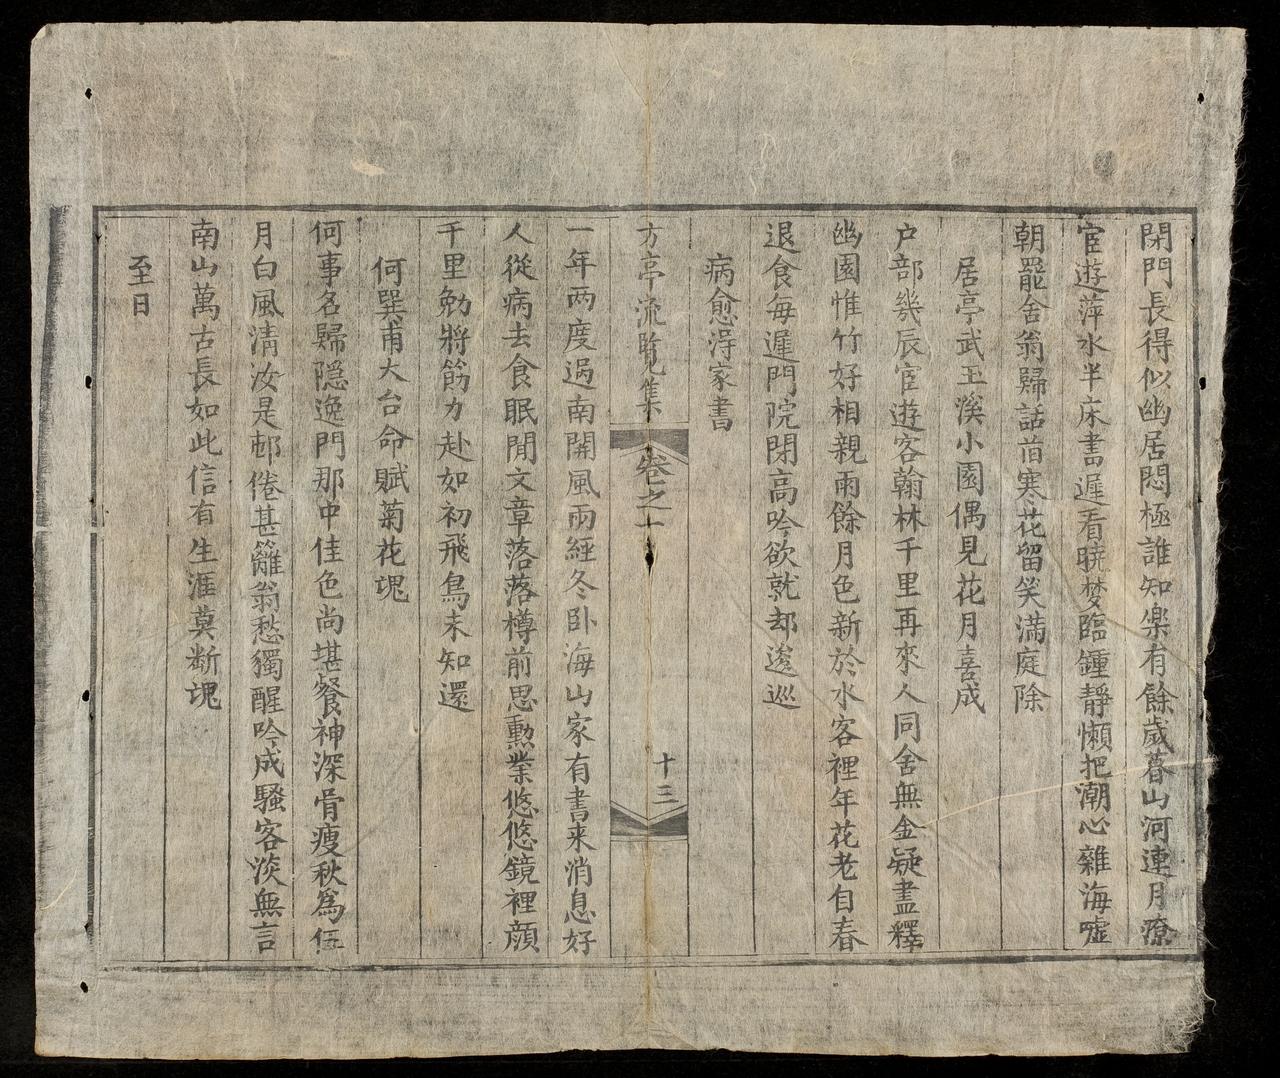 閉門長得似幽居悶極誰知樂有餘歲暮山河連月潦
宦遊萍水半床書遲看曉梦臨鍾靜懶把潮心雜海噓
朝罷舍翁歸話旨寒花留笑滿庭除
居亭武玉溪小園偶見花月喜成
户部幾辰宦遊客翰林千里再來人同舍無金疑盡釋
幽園惟竹好相親雨餘月色新於水客裡年花老自春
退食每遲門院閉高吟欲就却逡巡
病愈得家書
方亭流覽集
卷之一
十三
一年两度過南關風雨經冬卧海山家有書来消息好
人從病去食眠閒文章落落樽前思勲業悠悠鏡裡顔
千里勉將筋力赴如初飛鳥未知還
何巽甫大台命賦菊花塊
何事名歸隐逸門那中佳色尚堪餐神深骨瘦秋為伍
月白風清汝是邨倦甚籬翁愁獨醒吟成騷客淡無言
南山萬古長如此信有生涯莫断塊
至日